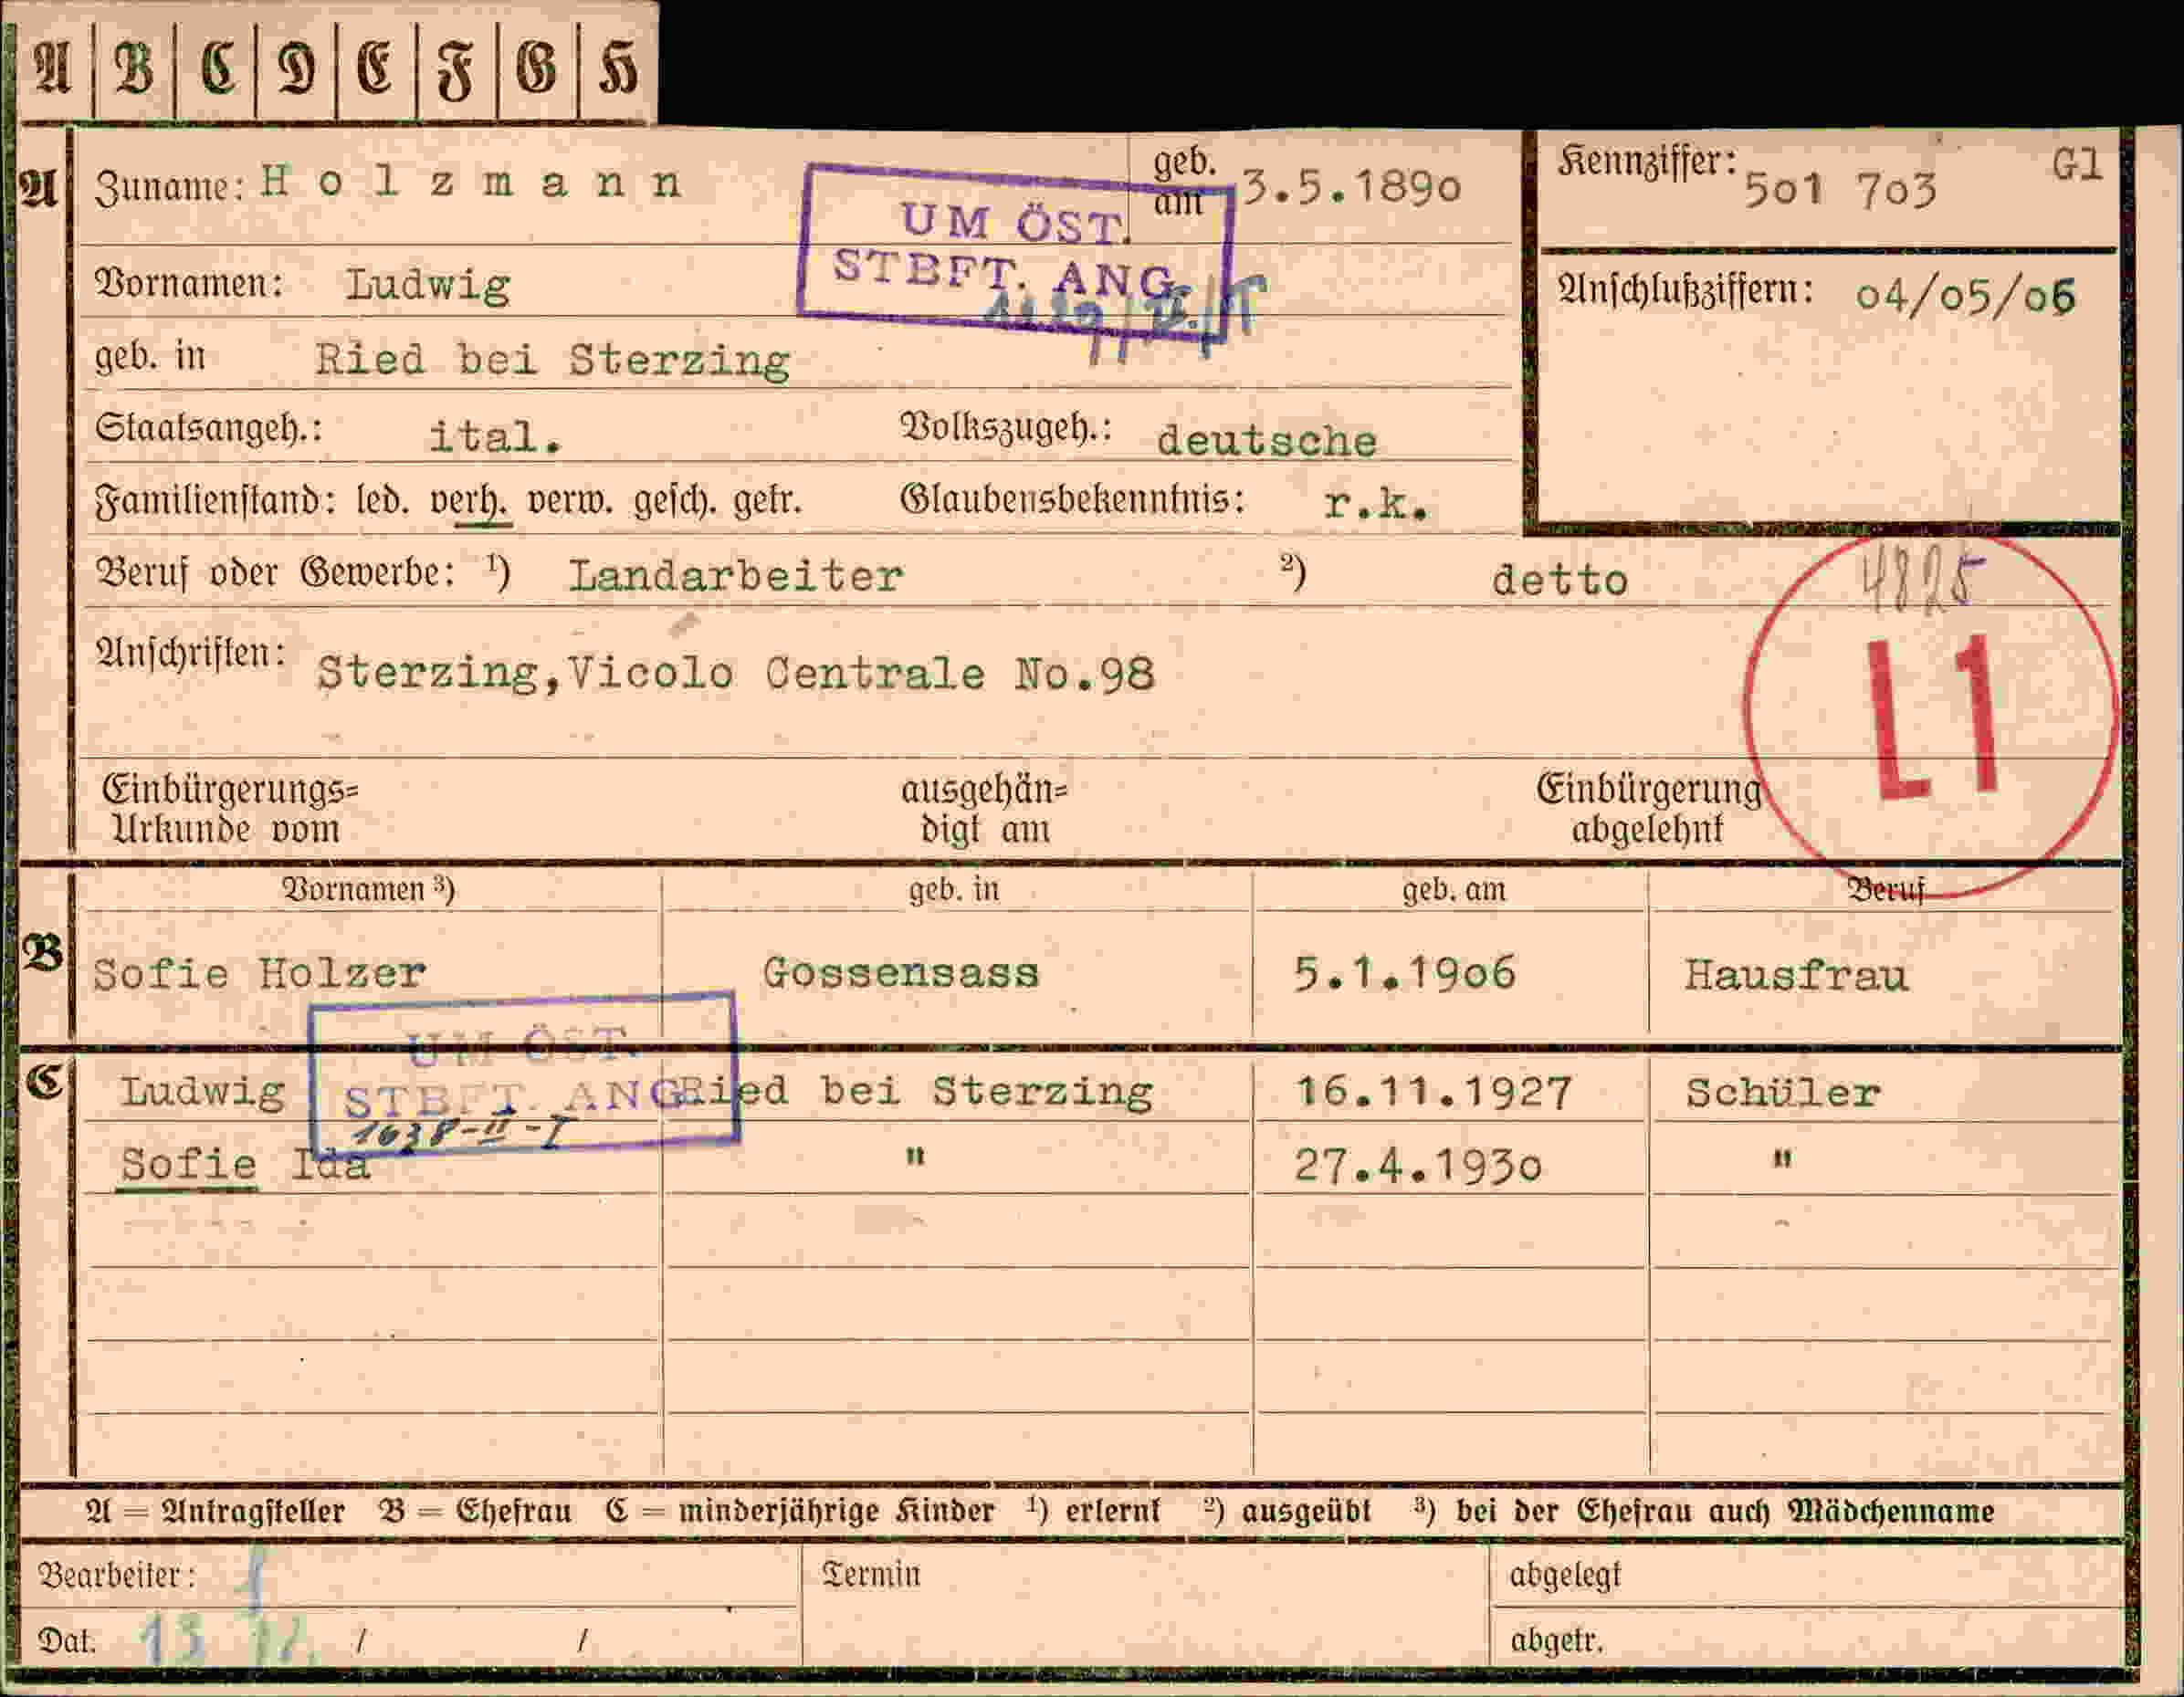 A B C D E F G H
A Zuname: Holzmann geb. am 3.5.1890 Kennziffer: 501 703 Gl
UM ÖST.
STBFT. ANG.
Vornamen: Ludwig Anschlußziffern: 04/05/06
geb. in Ried bei Sterzing
Staatsangeh.: ital. Volkszugeh.: deutsche
Familienstand: led. verh. verw. gesch. getr. Glaubensbekenntnis: r.k.
Beruf oder Gewerbe: ¹) Landarbeiter ²) detto 4825
Anschriften: Sterzing,Vicolo Centrale No.98
L1
Einbürgerungs= ausgehän= Einbürgerung
Urkunde vom digt am abgelehnt
Vornamen ³) geb. in geb. am Beruf
B Sofie Holzer Gossensass 5.1.1906 Hausfrau
UM ÖST.
STBFT. ANG.
1638-II-I
C Ludwig Ried bei Sterzing 16.11.1927 Schüler
Sofie Ida " 27.4.1930 "
A = Antragsteller B = Ehefrau C = minderjährige Kinder ¹) erlernt ²) ausgeübt ³) bei der Ehefrau auch Mädchenname
Bearbeiter: Termin abgelegt
Dat. 13 / / abgetr.